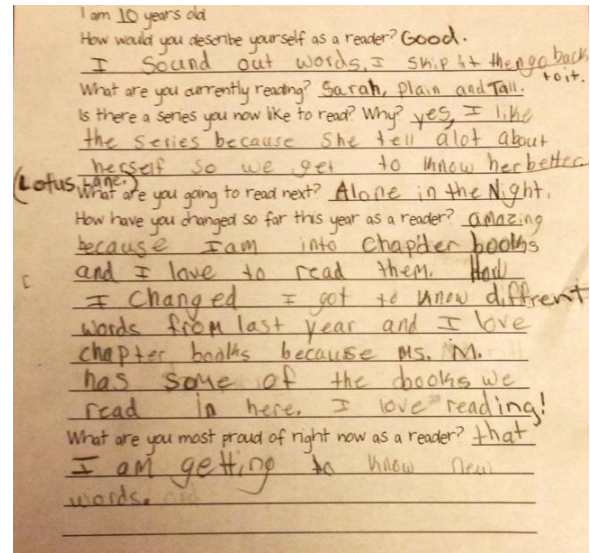 I am 10 years old
How would you describe yourself as a reader? Good.
I Sound out words, I skip it then go back
to it.
What are you currently reading? Sarah, plain and Tall.
Is there a series you now like to read? Why? yes, I like
the series because she tell alot about
herself so we get to know her better
(Lotus Lane.)
What are you going to read next? Alone in the Night.
How have you changed so far this year as a reader? amazing
because I am into chapter books
and I love to read them. How
I changed I got to know diffrent
words from last year and I love
chapter books because Ms. M.
has some of the books we
read in here. I love reading!
What are you most proud of right now as a reader? that
I am getting to know new
words.